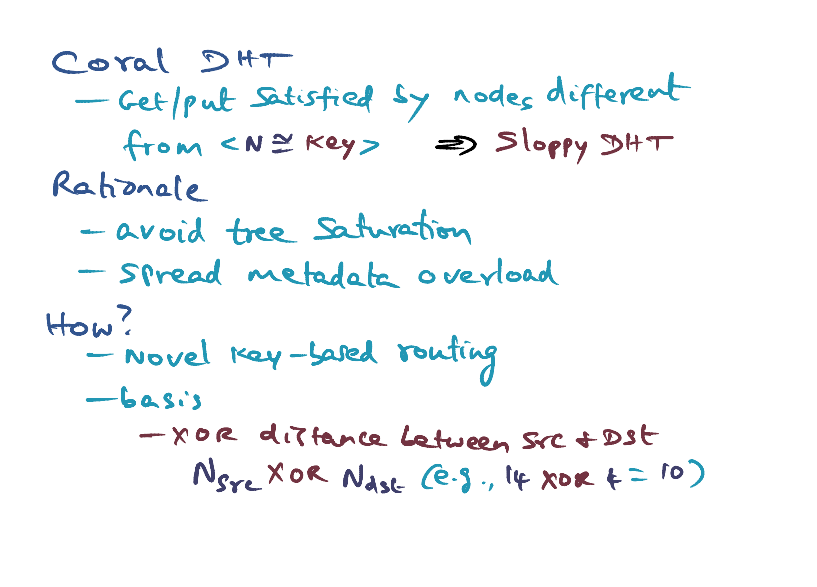 Coral DHT
— Get/put satisfied by nodes different
from <N ≅ key> ⇒ Sloppy DHT
Rationale
— avoid tree saturation
— spread metadata overload
How?
— Novel key-based routing
— basis
— XOR distance between src + Dst
Nsrc XOR Ndst (e.g., 14 XOR 4 = 10)